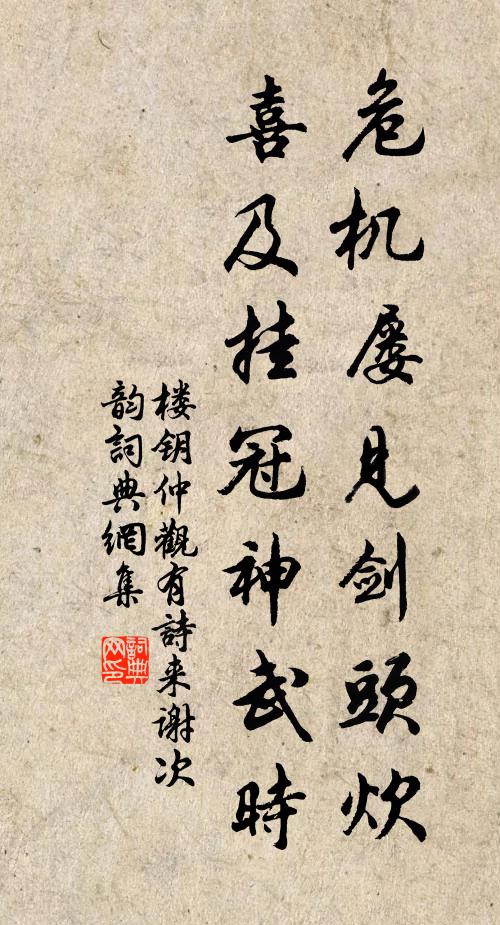 危机屡见剑頭炊
喜及挂冠神武時
楼钥仲觀有詩来谢次
韵詞典網集
詞典网印